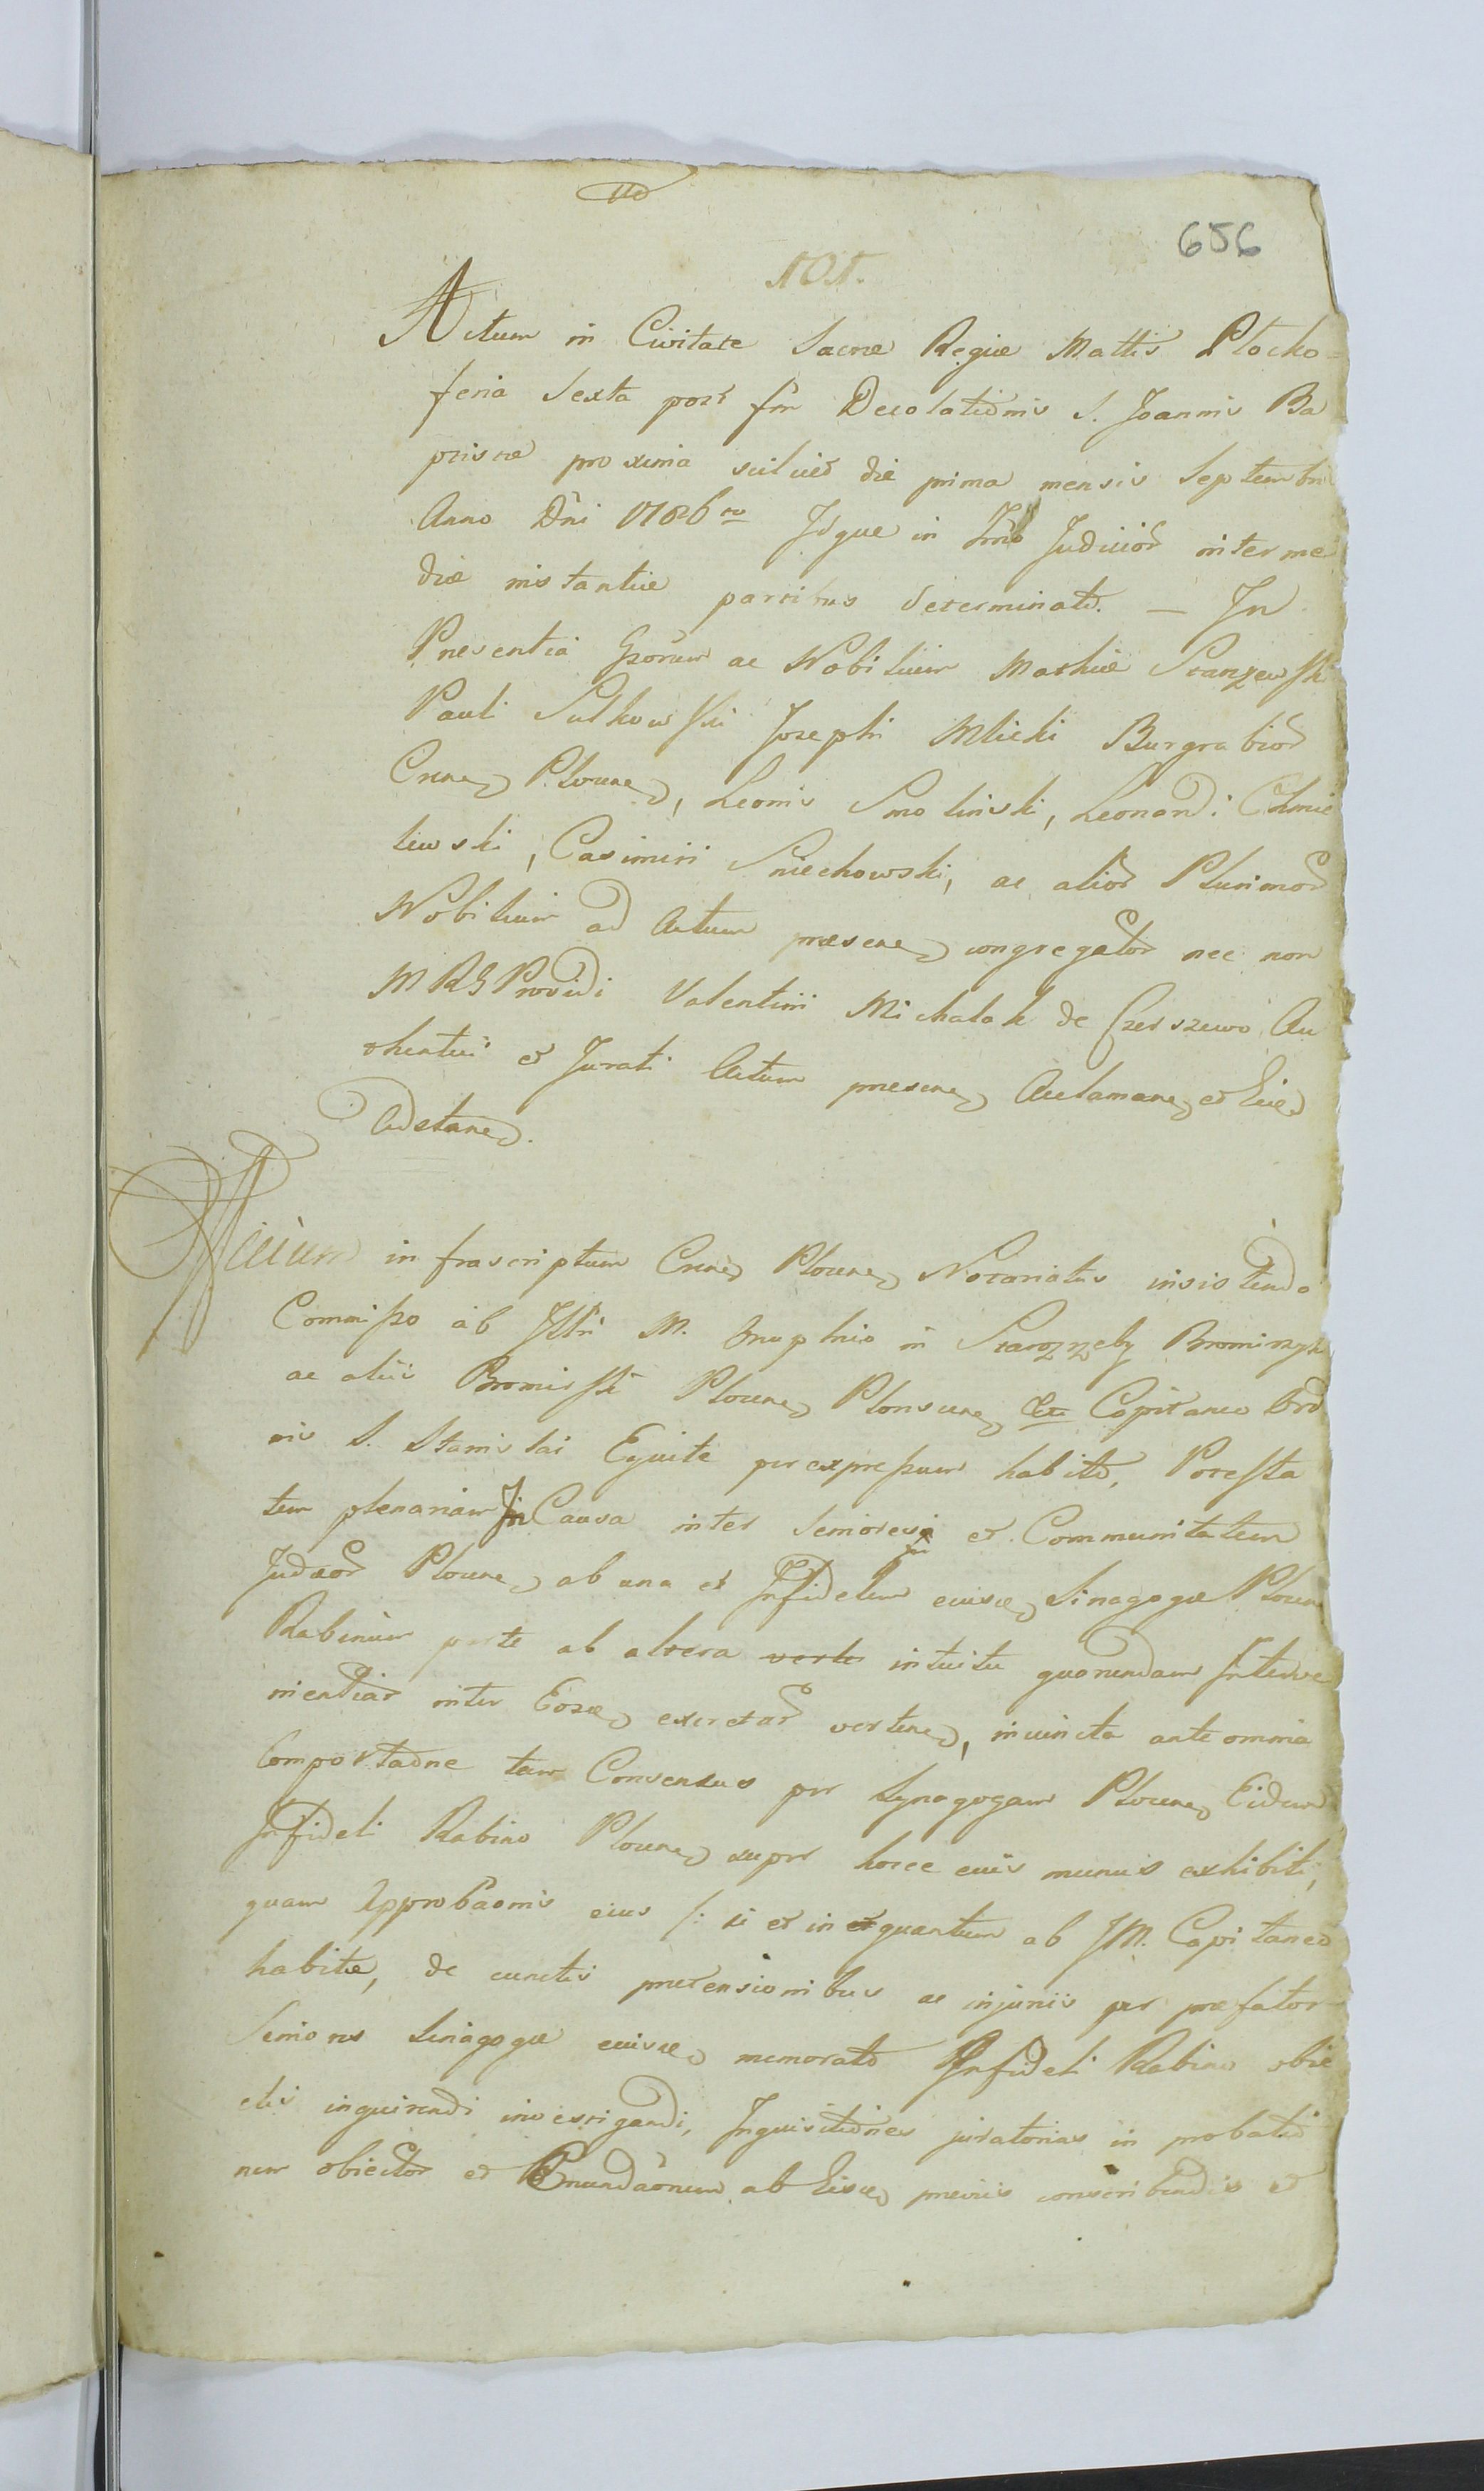 656
101.
Actum in Civitate Sacræ Regiæ Mattis Plocko=
feria Sexta post fm Decolationis S. Joannis Ba
ptistæ proxima scilicet die prima mensis Septembris
Anno Dni 1786to Idque in Judiciord interme
diæ instantiæ partibus determinato. — In
Presentia Gsorum ac Nobilium Mathiæ Stanzewski
Pauli Sulkowski Josephi Mlicki Burgrabiord
Crnen Plocnen, Leonis Smolinski, Leonardi Chmie
liewski, Casimiri Sniechowski, ac aliord Plurimord
Nobilium ad Actum præsenen congregator nec non
MRGProvidi Valentini Michalak de Czerszewo Au
thentici et Jurati Actum præsenen Aclamanen et Eide
Adstanen.
Officium infrascriptum Crnen Plocnen Notoriatus insistendo
Commisso ab Illri M. Onuphrio in Starozzeby Bromirzyk
ac aliis Bromirski Plocnen Plonscnen Capitaneo Ord
nis S. Stanislai Equite per expressum habito, Potesta
tem plenariam In Causa inter Seniores et Communitatem
Judæord Plocnen ab una et Infidelem eiusdem Sinagogæ Plocnen
Rabinum parte ab altera intuitu quorundam Interve
nientiar inter Eosdem exercitar verten, iniuncta ante omnia
Comportaone tam Consensus per Synagogam Plocnen Eidem
Infideli Rabino Plocnen super hocce eius munus exhibiti,
quam Approbaonis eius /: si et in quantum ab JM. Capitaneo
habitæ, de cunctis prætensionibus ac injuriis per præfator
Seniores Sinagogæ eiusdem memorato Infideli Rabino obie
ctis inquirendi investigandi, Inquisitiones juratorias in probatio
nem obiector et Emundaonem ab Eisdem præviis conscribendis et